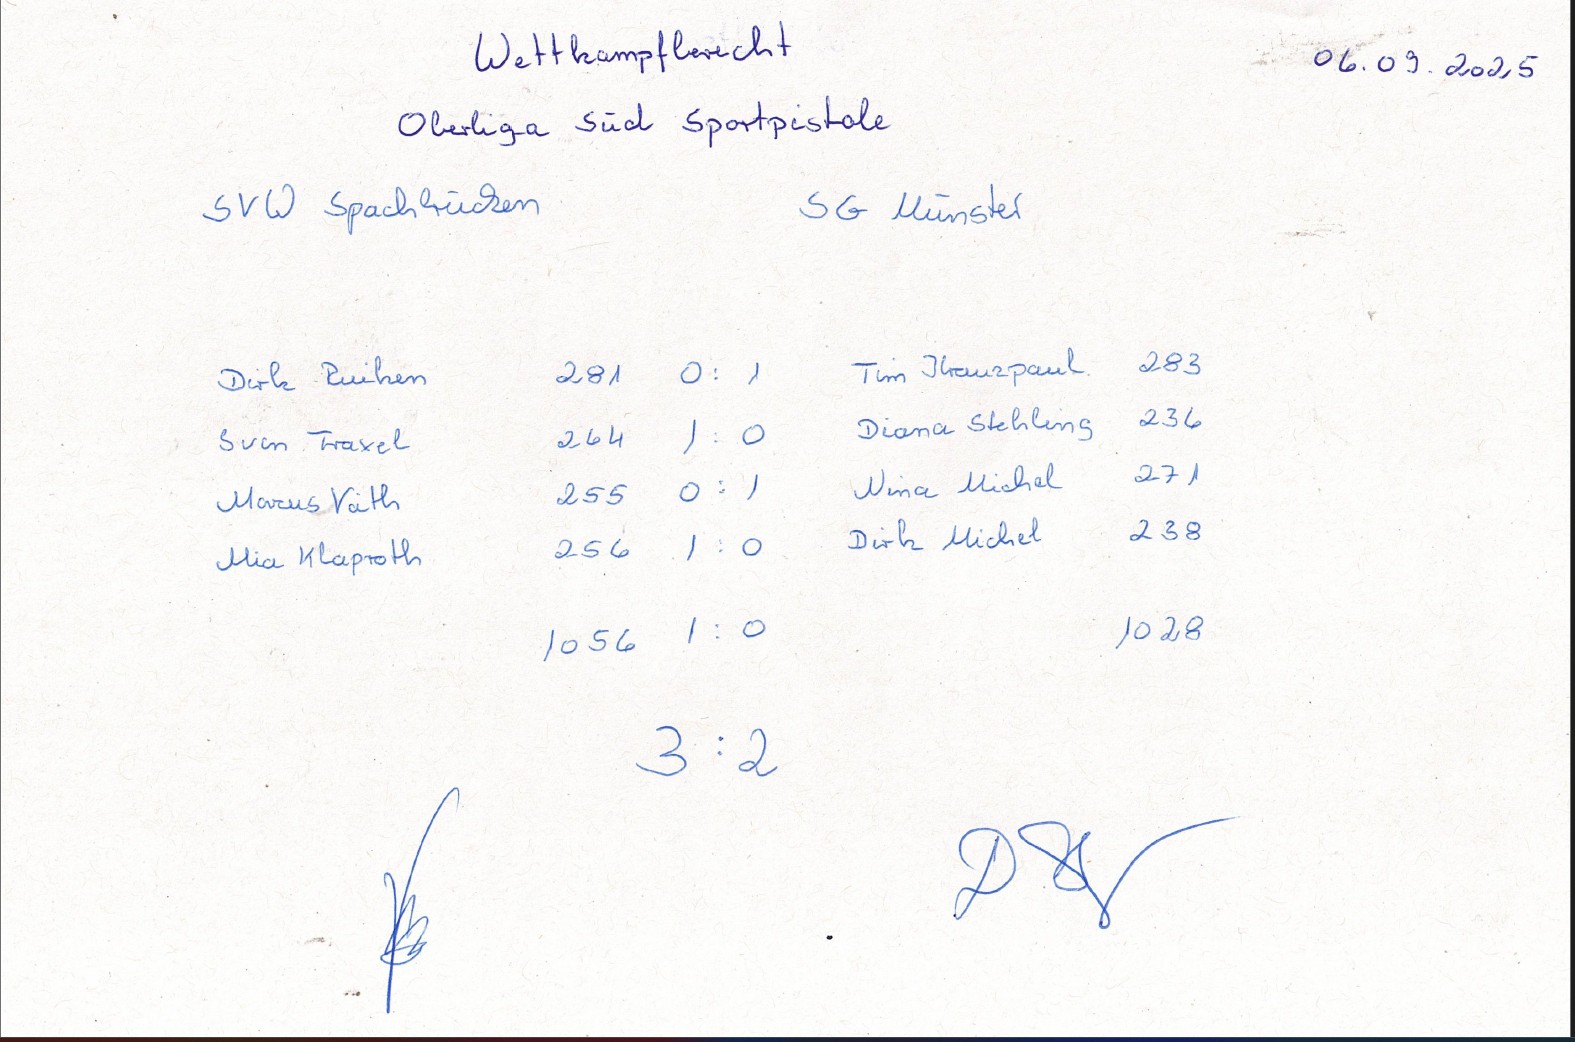 Wettkampfbericht
06.09.2025
Oberliga Süd Sportpistole
SVW Spachbrücken SG Münster
Dirk 281 0:1 Tim Kranzpaul. 283
Sven Traxel 264 1:0 Diana Stehling 236
Marcus Väth 255 0:1 Nina Michel 271
Mia Klaproth 256 1:0 Dirk Michel 238
1056 1:0 1028
3:2